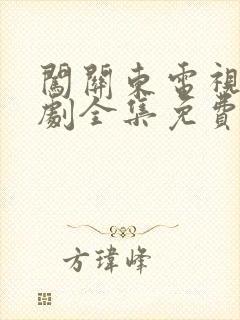 闖關東電視
劇全集免費
方瑋峰